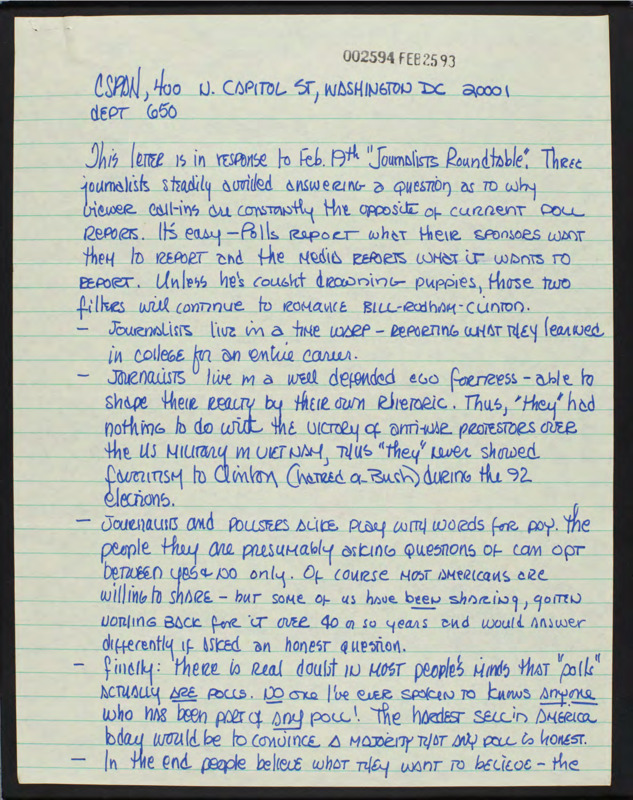 002594 FEB 25 93
CSPAN, 400 N. CAPITOL ST, WASHINGTON DC 20001
DEPT 650
This letter is in response to Feb. 19th "Journalists Roundtable". Three
journalists steadily avoided answering a question as to why
viewer call-ins are constantly the opposite of current poll
reports. It's easy - Polls report what their sponsors want
them to report and the media reports what it wants to
report. Unless he's caught drowning puppies, those two
filters will continue to romance Bill-Rodham-Clinton.
- Journalists live in a time warp - reporting what they learned
in college for an entire career.
- Journalists live in a well defended ego fortress - able to
shape their reality by their own rhetoric. Thus, "they" had
nothing to do with the victory of anti-war protestors over
the US Military in Vietnam, thus "they" never showed
favoritism to Clinton (hatred of Bush) during the 92
elections.
- Journalists and pollsters alike play with words for pay. The
people they are presumably asking questions of can opt
between yes & no only. Of course most Americans are
willing to share - but some of us have been sharing, gotten
nothing back for it over 40 or so years and would answer
differently if asked an honest question.
- Finally: there is real doubt in most people's minds that "polls"
actually are polls. No one I've ever spoken to knows anyone
who has been part of any poll! The hardest sell in America
today would be to convince a majority that any poll is honest.
- In the end people believe what they want to believe - the